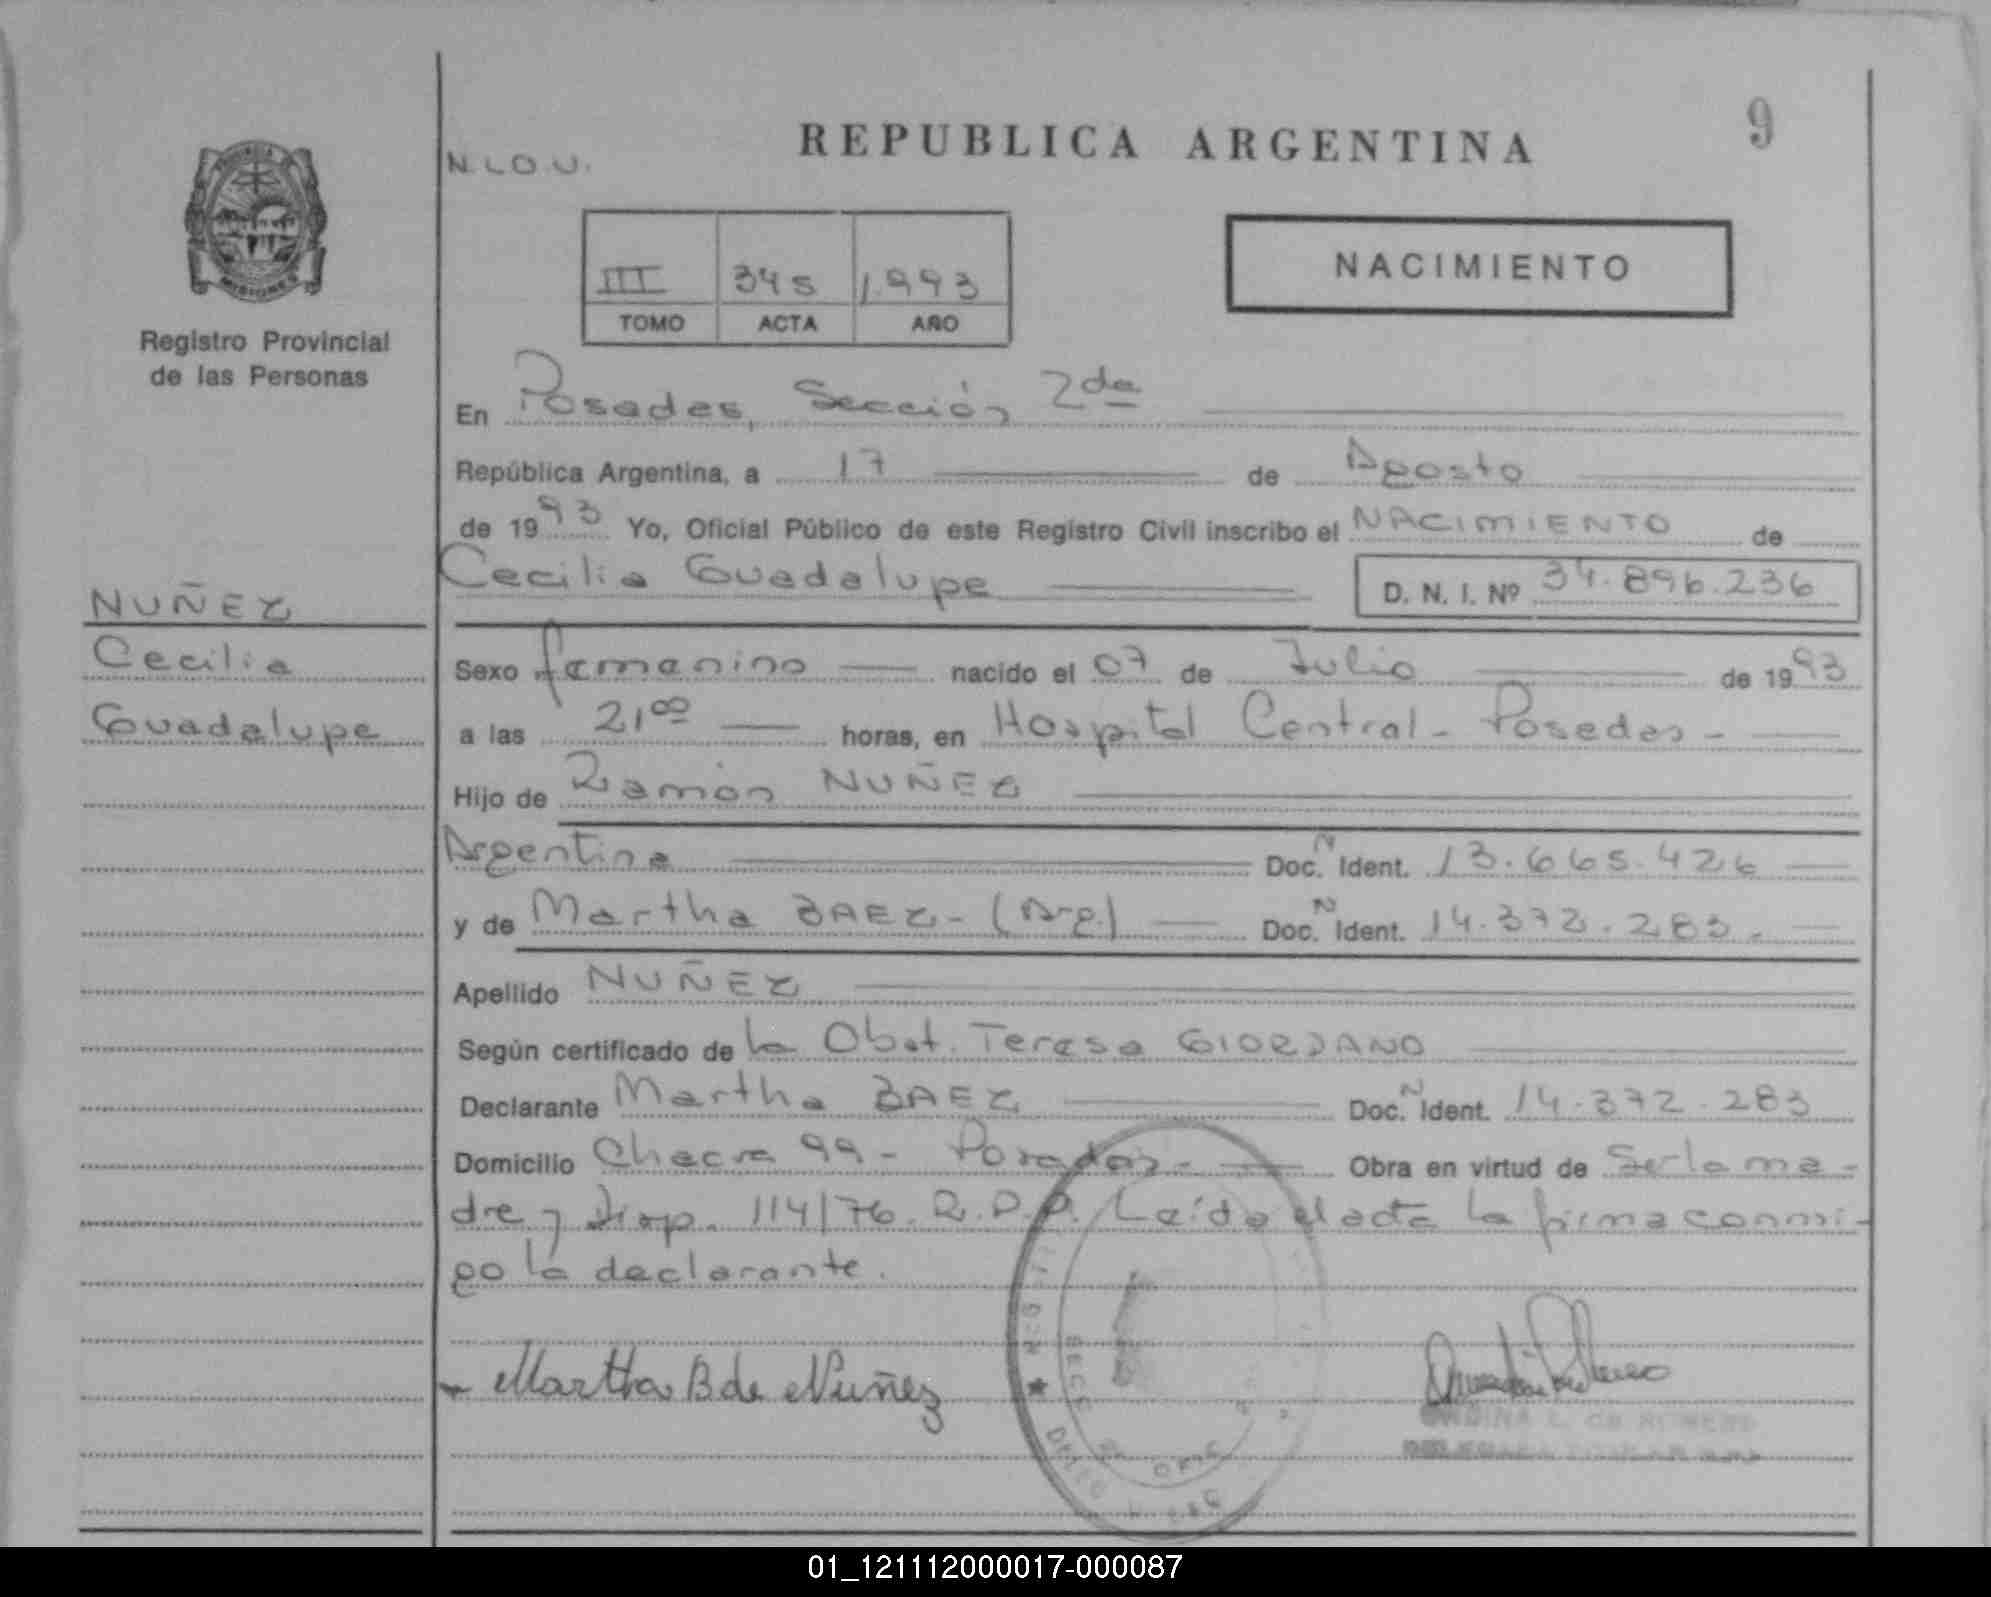 REPUBLICA ARGENTINA
9
N.L.O.U.
MISIONES
Registro Provincial
de las Personas
III 345 1.993
TOMO ACTA AÑO
NACIMIENTO
En Posadas, Sección 2da
República Argentina, a 17 de Agosto
de 1993 Yo, Oficial Público de este Registro Civil inscribo el NACIMIENTO de
Cecilia Guadalupe D. N. I. Nº 34.896.236
NUÑEZ
Cecilia
Guadalupe
Sexo femenino nacido el 07 de Julio de 1993
a las 21⁰⁰ horas, en Hospital Central - Posadas -
Hijo de Ramón NUÑEZ
Argentina Doc. N Ident. 13.665.426
y de Martha BAEZ - (Arg.) Doc. N Ident. 14.372.283.
Apellido NUÑEZ
Según certificado de la Obst. Teresa GIORDANO
Declarante Martha BAEZ Doc. N Ident. 14.372.283
Domicilio Chacra 99 - Posadas - Obra en virtud de Ser la ma-
dre y Disp. 114/76. R.P.P. Leída el acta la firma conmi-
go la declarante.
Martha B de Nuñez
01_121112000017-000087